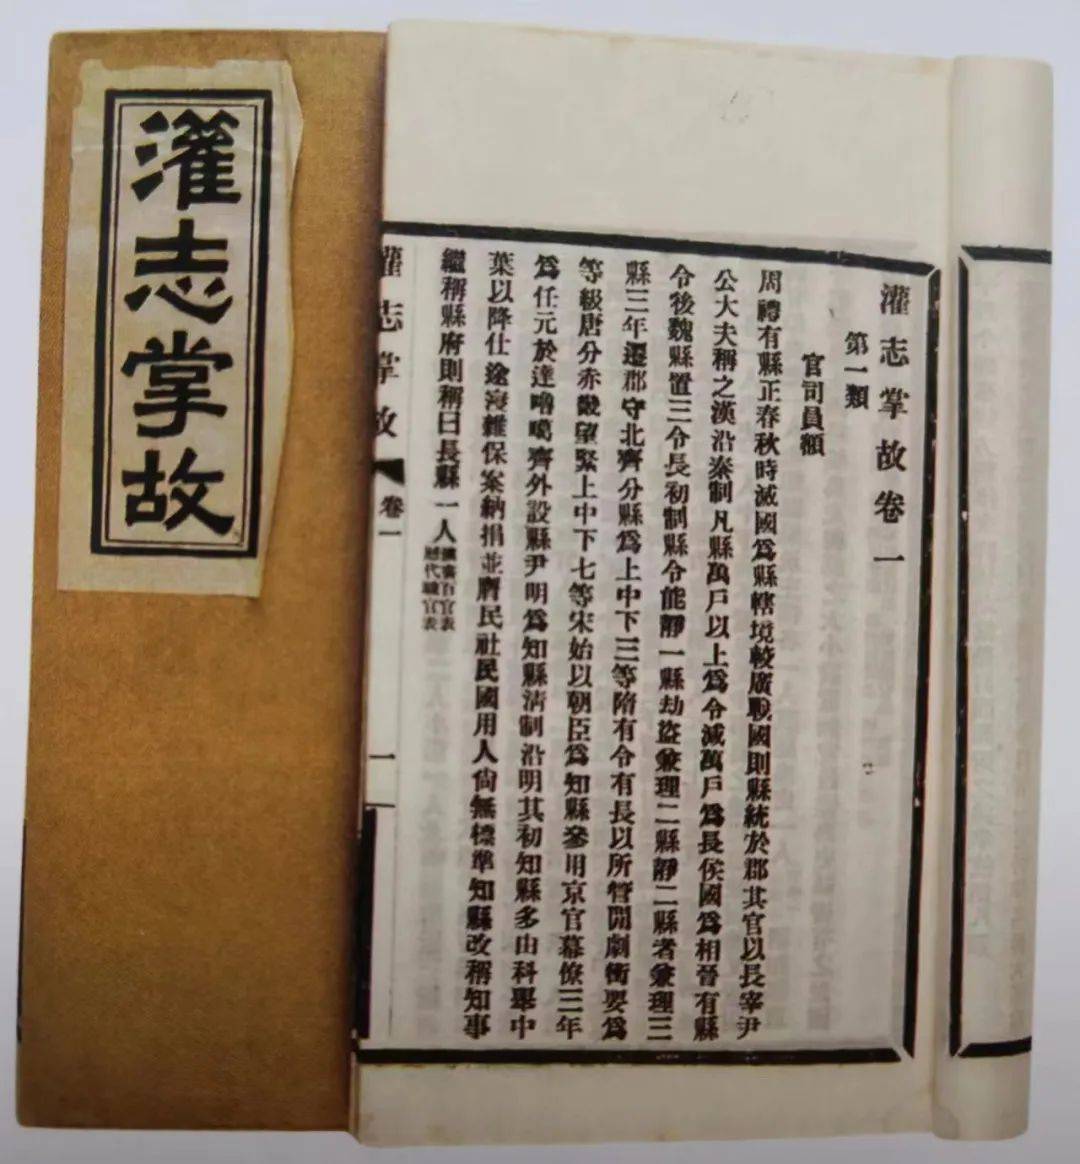 灌志掌故
灌志掌故卷一
第一類
官司員額
周禮有縣正春秋時滅國爲縣轄境較廣戰國則縣統於郡其官以長宰尹
公大夫稱之漢沿秦制凡縣萬戶以上爲令減萬戶爲長侯國爲相晉有縣
令後魏縣置三令長初制縣令能靜一縣劫盜兼理二縣靜二縣者兼理三
縣三年遷郡守北齊分縣爲上中下三等隋有令有長以所管閒劇衝要爲
等級唐分赤畿望緊上中下七等宋始以朝臣爲知縣參用京官幕僚三年
爲任元於達嚕噶齊外設縣尹明爲知縣清制沿明其初知縣多由科舉中
葉以降仕途淆雜保案納捐並膺民社民國用人尙無標準知縣改稱知事
繼稱縣府則稱曰長縣一人
歷代職官表
灌志掌故
卷一
一